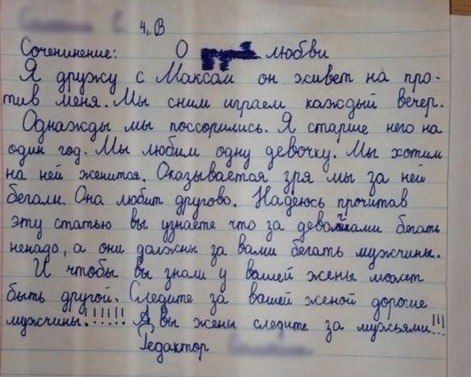 4 „В
Сочинение: О любви
Я дружу с Максом он живет на про-
тив меня. Мы сним играем каждый вечер.
Однажды мы поссорились. Я старше него на
один год. Мы любим одну девочку. Мы хотим
на ней женится. Оказывается зря мы за ней
бегали. Она любит другово. Надеюсь прочитав
эту статью вы узнаете что за девочками бегать
ненадо, а они должны за вами бегать мужчины.
И чтобы вы знали у вашей жены может
быть другой. Следите за вашей женой дорогие
мужчины.!!!!! А вы жены следите за мужьями!!!
Редактор